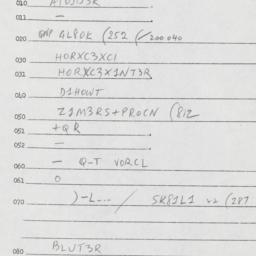 010 A1OJO3R
011 —
020 GNP GL8OK (252 (/200.040
030 HORXC3XCI
031 HORXC3X1NT3R
040 D1HOWT
050 Z1M3RS+PROCN (812
051 +QR
052 —
060 — Q-T VORCL
061 O
070 )-L... / SR81L1 (287
080 BLUT3R